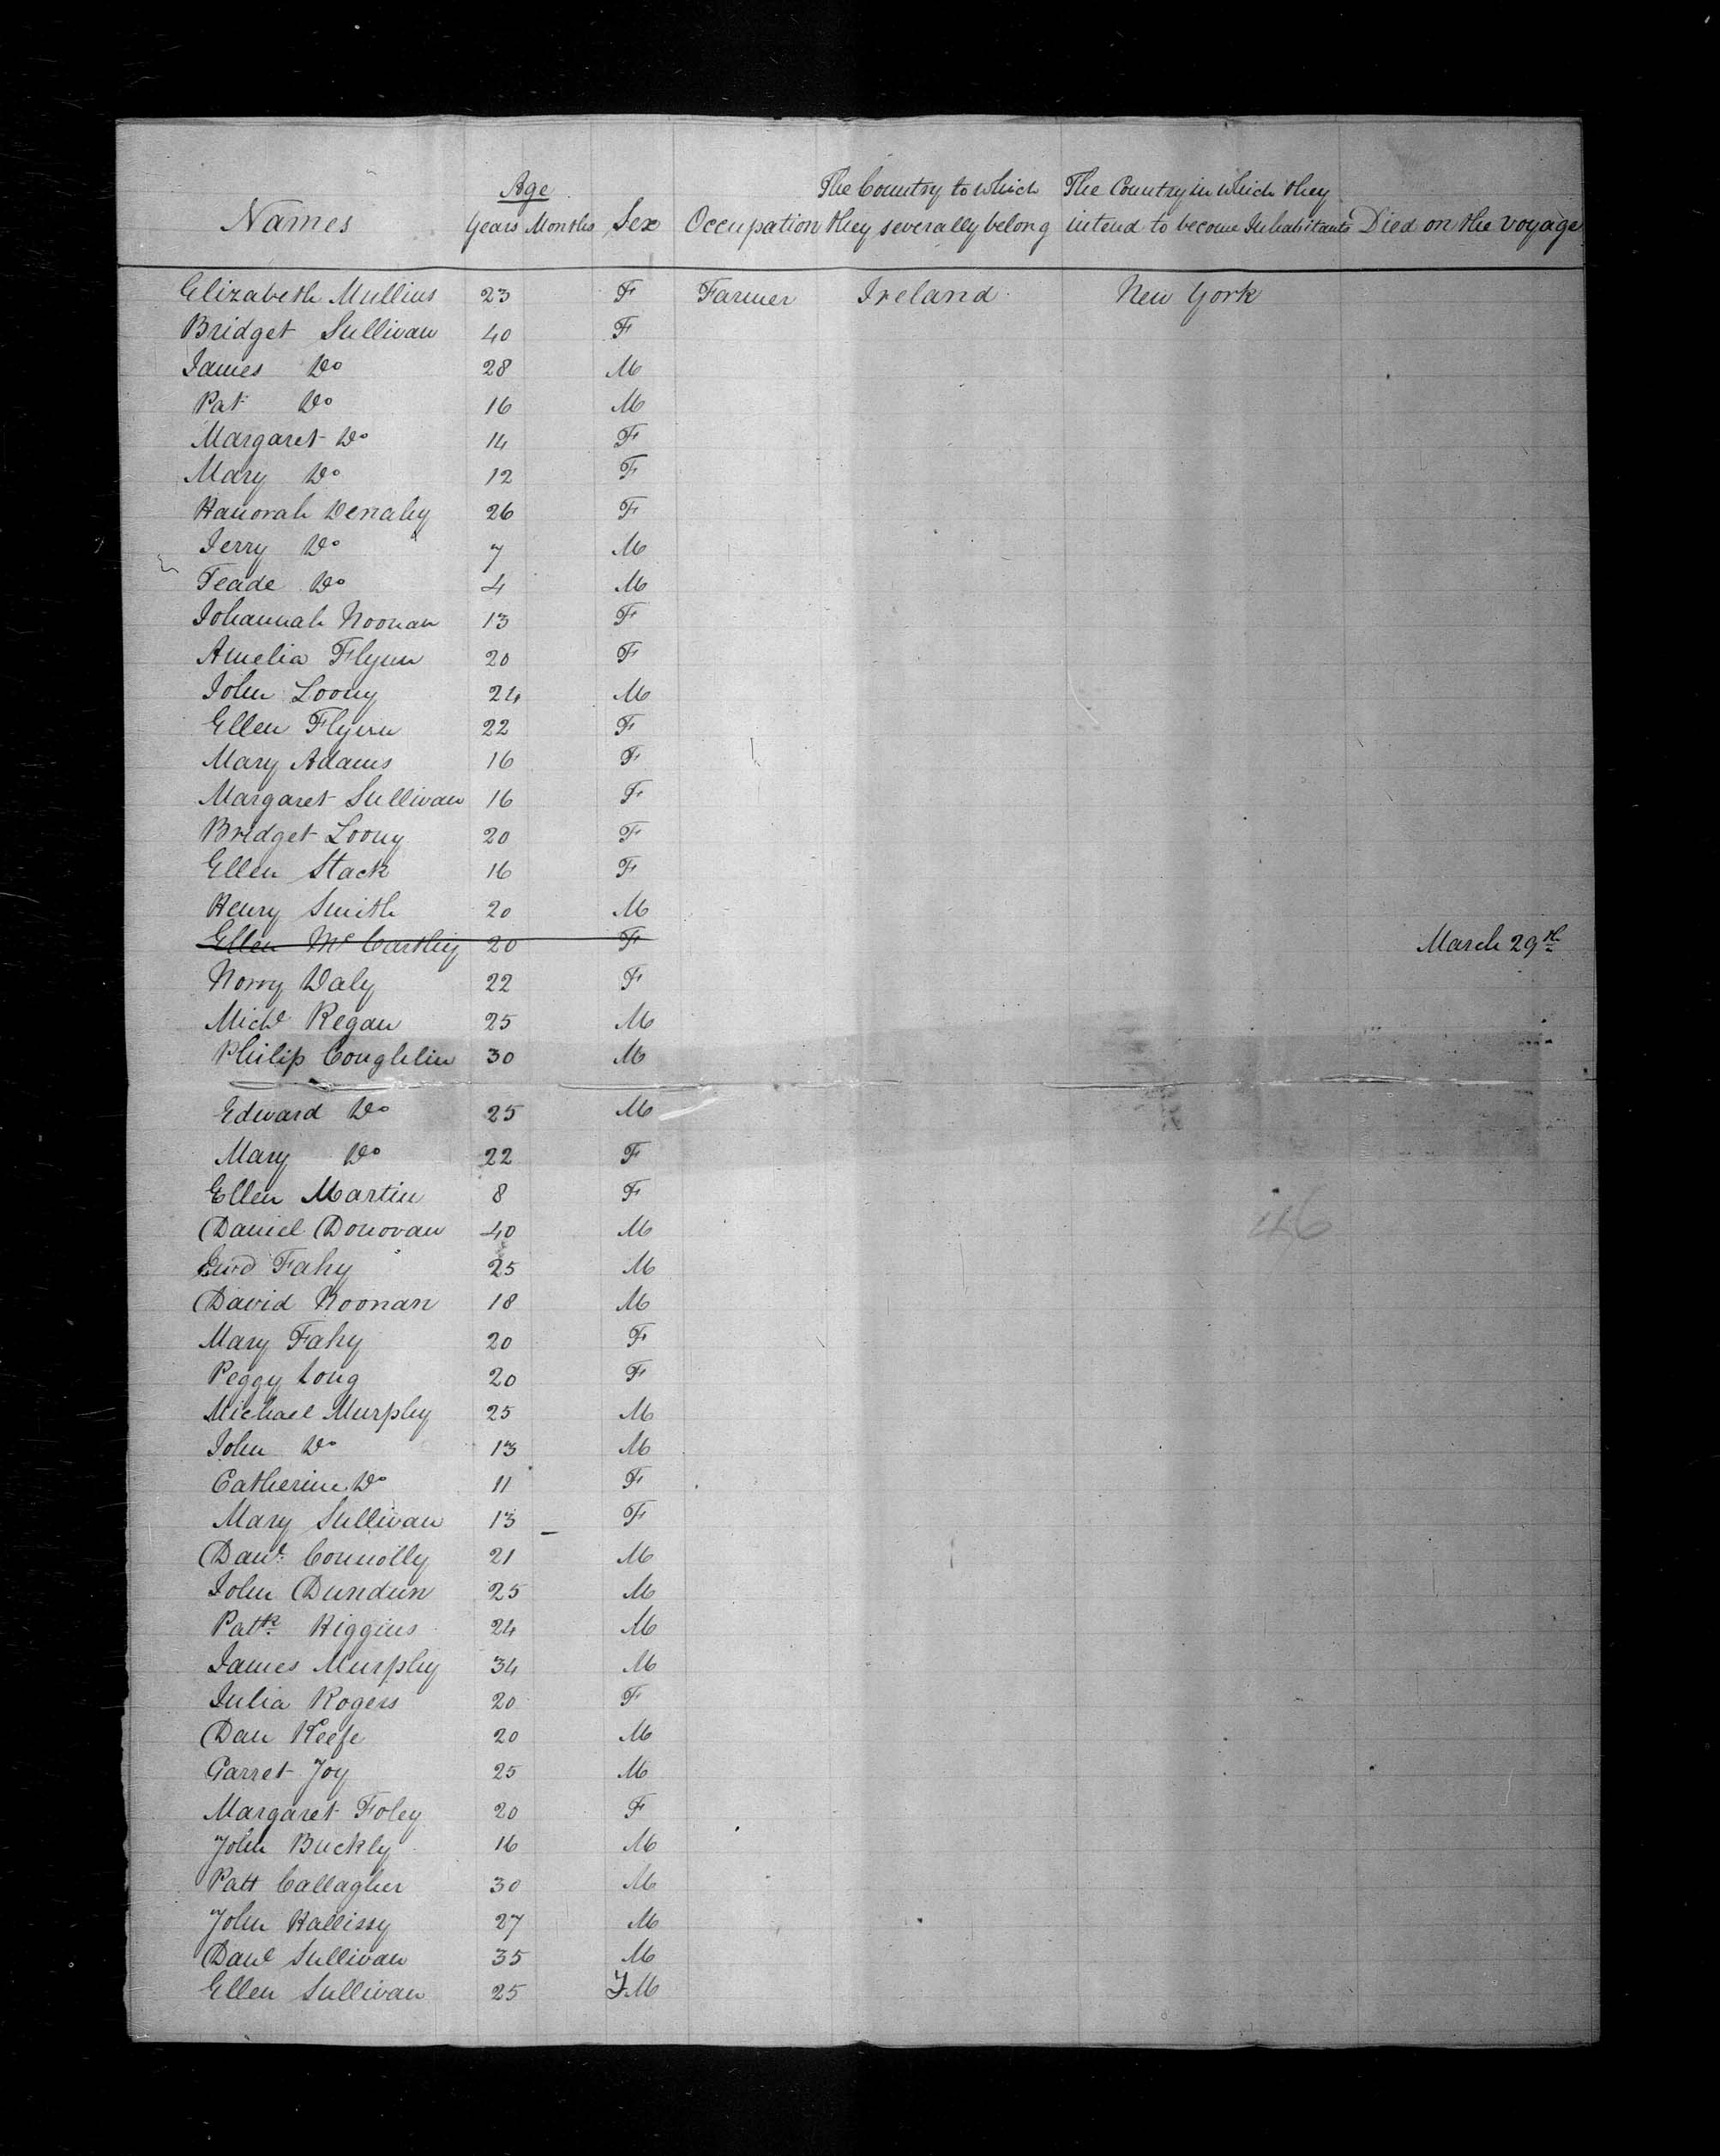 Age
The Country to which The Country in which they
Names Years Months Sex Occupation they severally belong intend to become Inhabitants Died on the voyage
Elizabeth Mullins 23 F Farmer Ireland New York
Bridget Sullivan 40 F
James Do 28 M
Pat Do 16 M
Margaret Do 14 F
Mary Do 12 F
Hanorah Denahy 26 F
Jerry Do 7 M
Teade Do 4 M
Johannah Noonan 13 F
Amelia Flynn 20 F
John Loony 24 M
Ellen Flynn 22 F
Mary Adams 16 F
Margaret Sullivan 16 F
Bridget Loony 20 F
Ellen Stack 16 F
Henry Smith 20 M
Ellen McCarthy 20 F March 29th
Norry Daly 22 F
Michl Regan 25 M
Philip Coughlin 30 M
Edward Do 25 M
Mary Do 22 F
Ellen Martin 8 F
Daniel Donovan 40 M
46
Ewd Fahy 25 M
David Noonan 18 M
Mary Fahy 20 F
Peggy Long 20 F
Michael Murphy 25 M
John Do 13 M
Catherine Do 11 F
Mary Sullivan 13 F
Danl Connolly 21 M
John Dundun 25 M
Patk Higgins 24 M
James Murphy 34 M
Julia Rogers 20 F
Dan Keefe 20 M
Garret Joy 25 M
Margaret Foley 20 F
John Buckly 16 M
Patt Callagher 30 M
John Hallissy 27 M
Danl Sullivan 35 M
Ellen Sullivan 25 FM